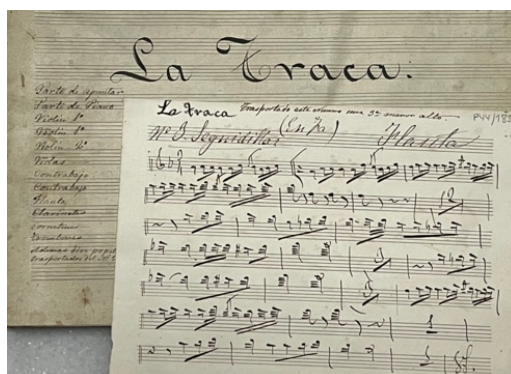 La Traca.
Parte de apuntar
Parte de Piano
Violin 1º
Violin 1º
Violin 2º
Violas
Contrabajo
Contrabajo
Flauta
Clarinetes
Cornetines
La Traca Trasportado este número una 3ª menor alta
Nº 3. Seguidillas (En Fa) Flauta